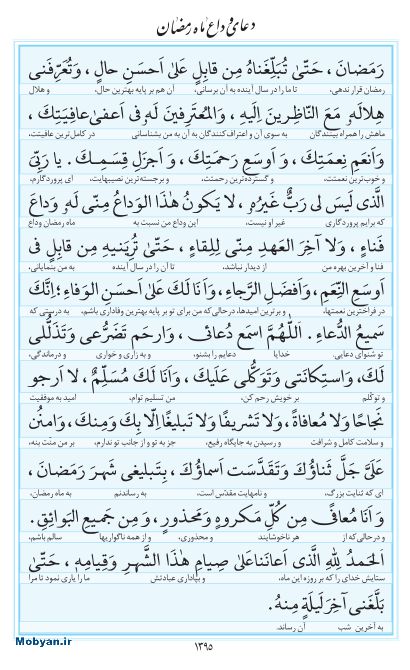 دعای وداع ماه رمضان
رَمَضانَ ، حَتّىٰ تُبَلِّغَناهُ مِن قابِلٍ عَلىٰ اَحسَنِ حالٍ ، وَتُعَرِّفَنى
رمضان قرار ندهی، تا ما را در سال آینده به آن برسانی، آن هم بر پایه بهترین حال، و هلال
هِلالَهُ مَعَ النّاظِرينَ اِلَيهِ ، وَالمُعتَرِفينَ لَهُ فى اَعفىٰ عافِيَتِكَ ،
ماهش را همراه بینندگان به سوی آن و اعتراف‌کنندگان به آن به من بشناسانی در کامل‌ترین عافیتت،
وَاَنعَمِ نِعمَتِكَ ، وَ اَوسَعِ رَحمَتِكَ ، وَ اَجزَلِ قِسَمِكَ . يا رَبِّىَ
و خوب‌ترین نعمتت، و گسترده‌ترین رحمتت، و برجسته‌ترین نصیبهایت، ای پروردگارم،
الَّذى لَيسَ لى رَبٌّ غَيرُهُ ، لا يَكونُ هٰذَا الوَداعُ مِنّى لَهُ وَداعَ
که برایم پروردگاری غیر او نیست، این وداع من نسبت به ماه رمضان وداع
فَناءٍ ، وَلا آخِرَ العَهدِ مِنّى لِلِّقاءِ ، حَتّىٰ تُرِيَنيهِ مِن قابِلٍ فى
فنا و آخرین بهره من از دیدار نباشد، تا آن را در سال آینده به من بنمایانی،
اَوسَعِ النِّعَمِ ، وَاَفضَلِ الرَّجاءِ، وَاَنَا لَكَ عَلىٰ اَحسَنِ الوَفاءِ؛ اِنَّكَ
در فراخ‌ترین نعمتها، و برترین امیدها، درحالی که من برای تو بر پایه بهترین وفاداری باشم، به درستی که
سَميعُ الدُّعاءِ . اَللّٰهُمَّ اسمَع دُعائى ، وَارحَم تَضَرُّعى وَتَذَلُّلى
تو شنوای دعایی. خدایا دعایم را بشنو، و به زاری و خواری و درماندگی،
لَكَ، وَاستِكانَتى وَتَوَكُّلى عَلَيكَ ، وَاَنَا لَكَ مُسَلِّمٌ ، لا اَرجو
و توکّلم بر خویش رحم کن، من تسلیم توام، امید به موفقیت
نَجاحًا وَلا مُعافاةً، وَلا تَشريفًا وَلا تَبليغًا اِلّا بِكَ وَمِنكَ، وَامنُن
و سلامت کامل و شرافت و رسیدن به جایگاه رفیع، جز به تو و از جانب تو ندارم، بر من منّت بنه،
عَلَىَّ جَلَّ ثَناؤُكَ وَتَقَدَّسَت اَسماؤُكَ ، بِتَبليغى شَهرَ رَمَضانَ ،
ای که ثنایت بزرگ، و نامهایت مقدّس است، به رساندنم به ماه رمضان،
وَ اَنَا مُعافىً مِن كُلِّ مَكروهٍ وَمَحذورٍ ، وَ مِن جَميعِ البَوائِقِ.
و درحالی که از هر ناخوشایند و محذوری، و از همه ناگواریها سالم باشم،
اَلحَمدُ لِلّٰهِ الَّذى اَعانَنا عَلىٰ صِيامِ هٰذَا الشَّهرِ وَقِيامِهِ ، حَتّىٰ
ستایش خدای را که بر روزه این ماه، و بپاداری عبادتش ما را یاری نمود تا مرا
بَلَّغَنى آخِرَ لَيلَةٍ مِنهُ.
به آخرین شب آن رساند.
۱۳۹۵
Mobyan.ir